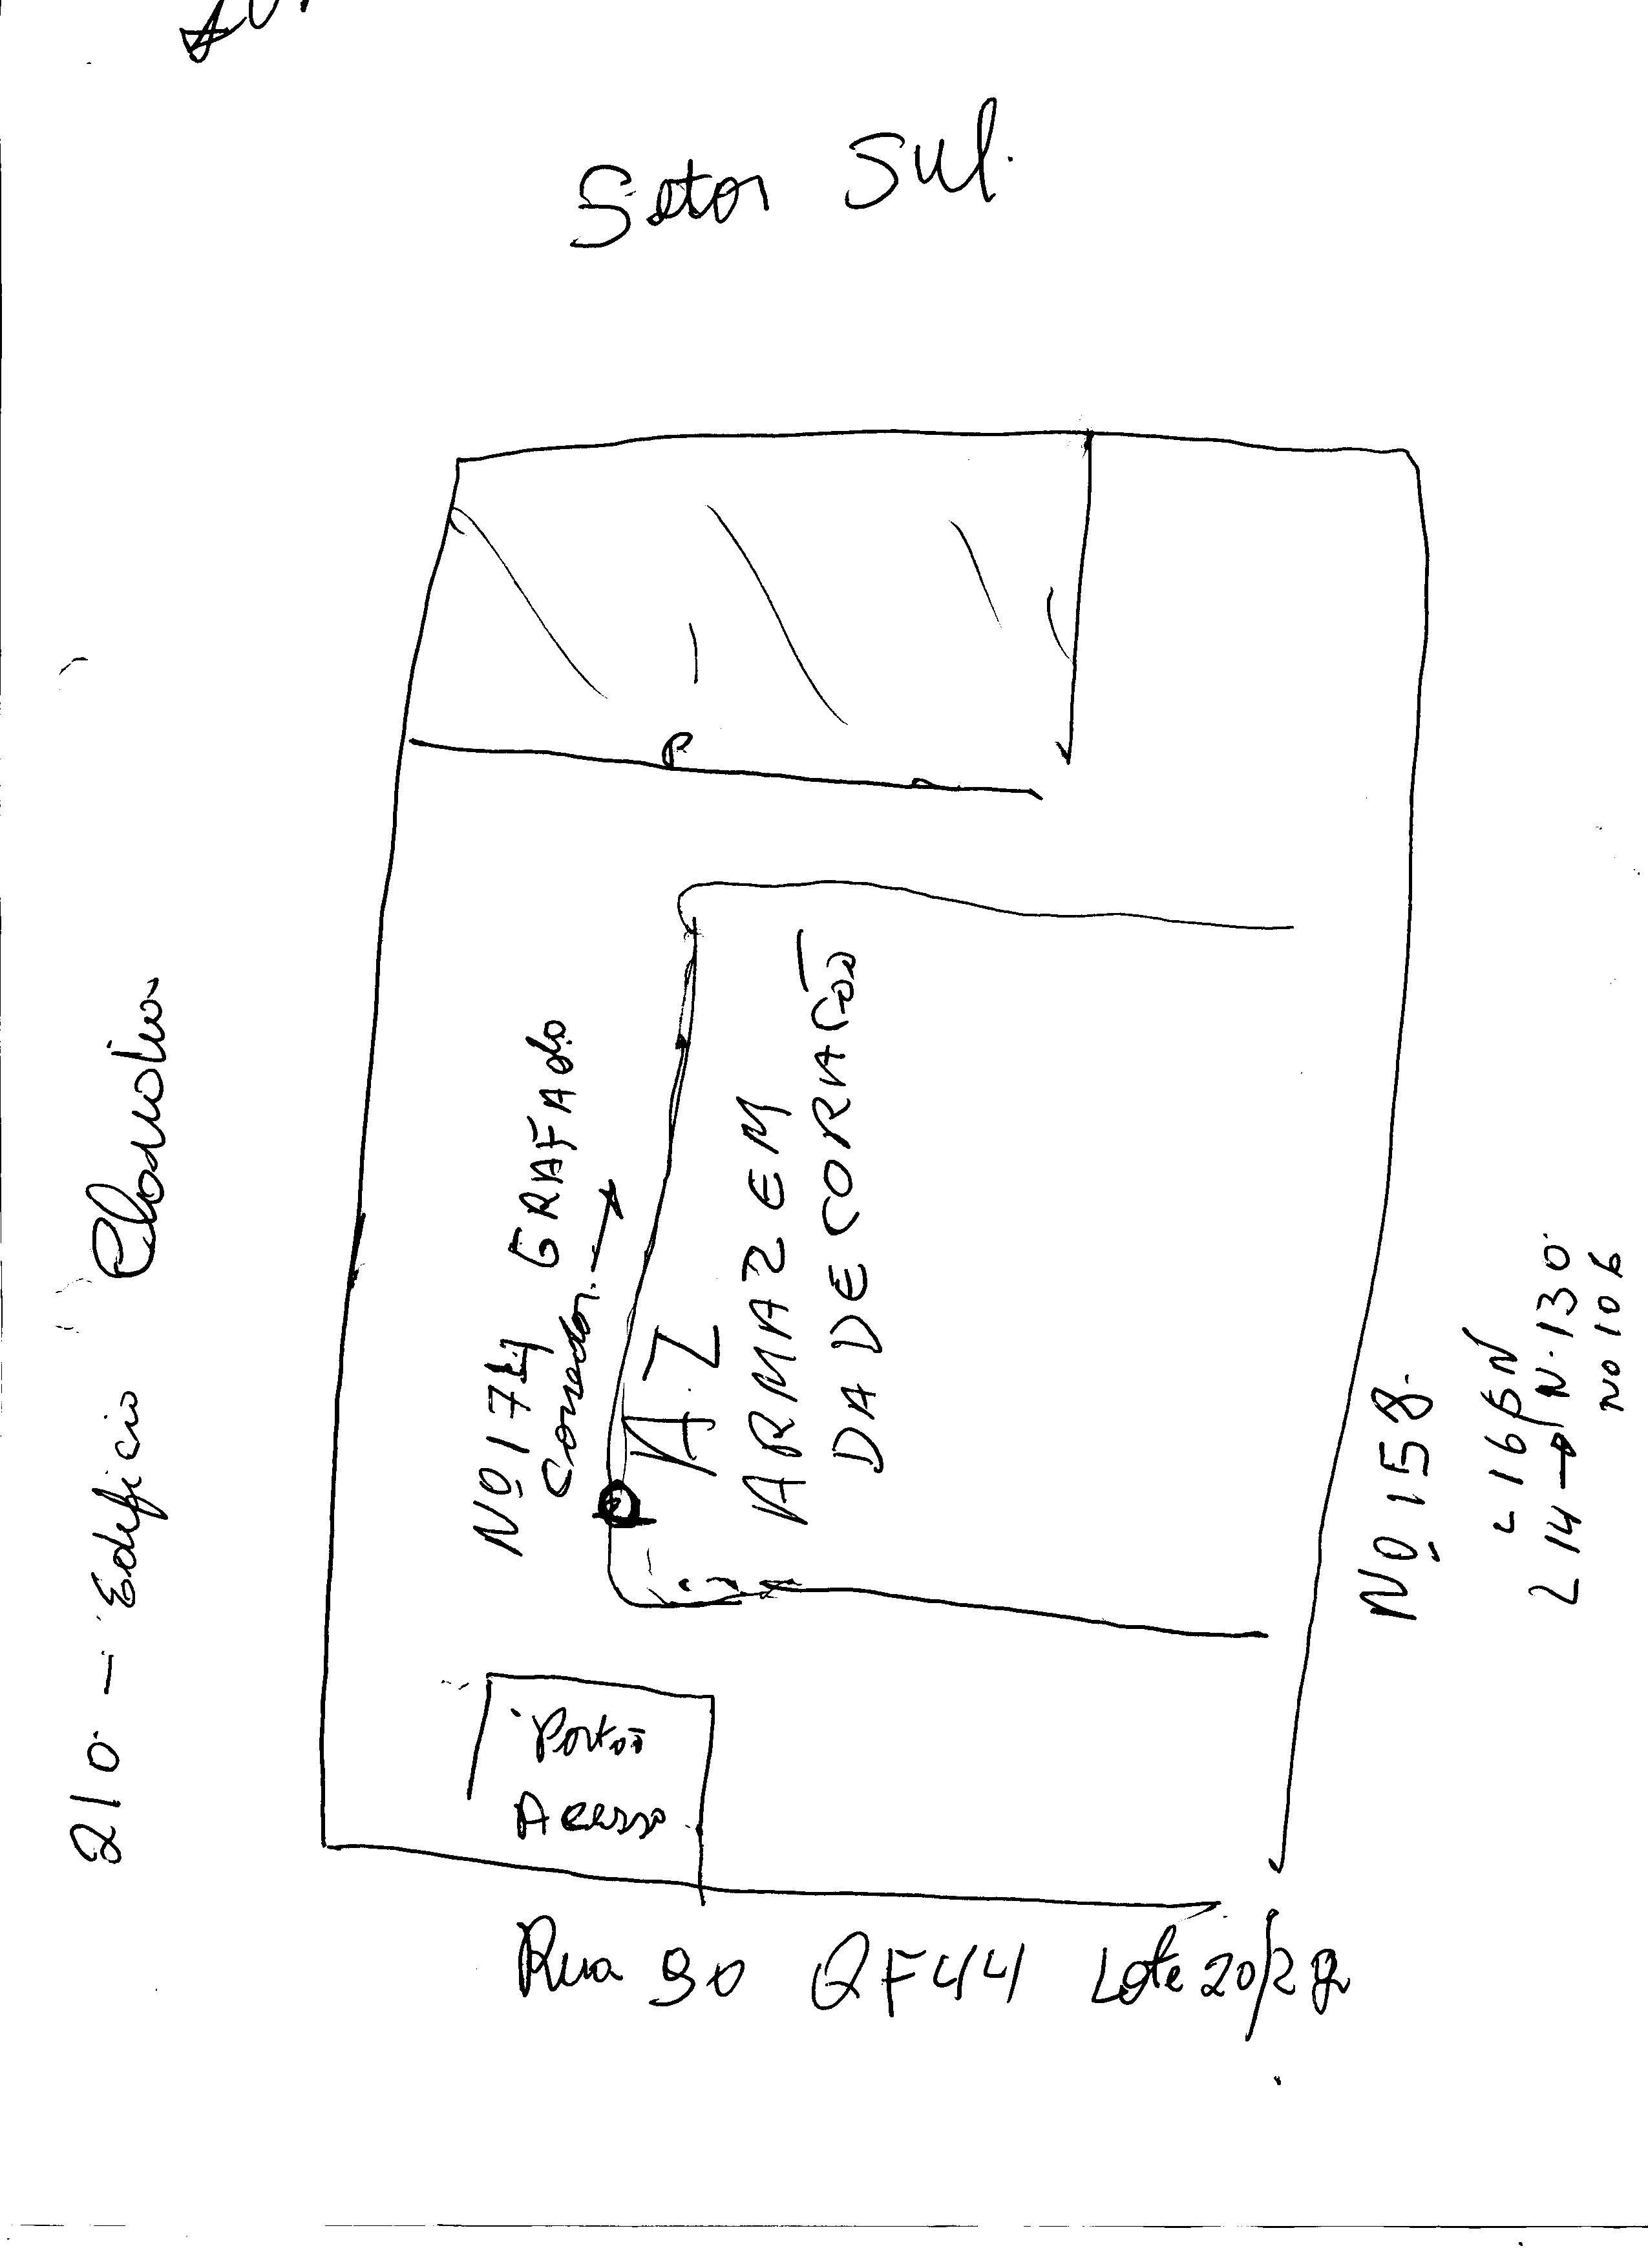 Setor Sul.
210 - Edificio
Nº 174 GRAFADO
Corredor.
A.Z
ARMAZEM
DA DECORAÇÃO
Portão
Acesso
Nº 158.
L 16
L 14 → N.130
Nº 106
Rua 90 QF44 Lote 20/2